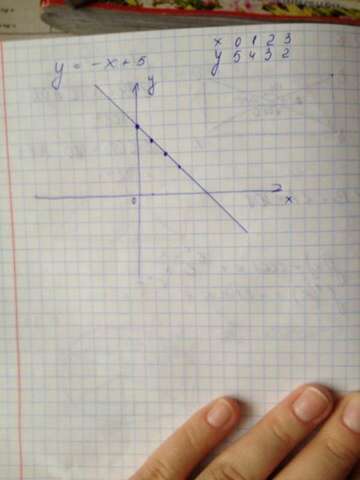 x 0 1 2 3
y 5 4 3 2
y = -x + 5
y
0
x